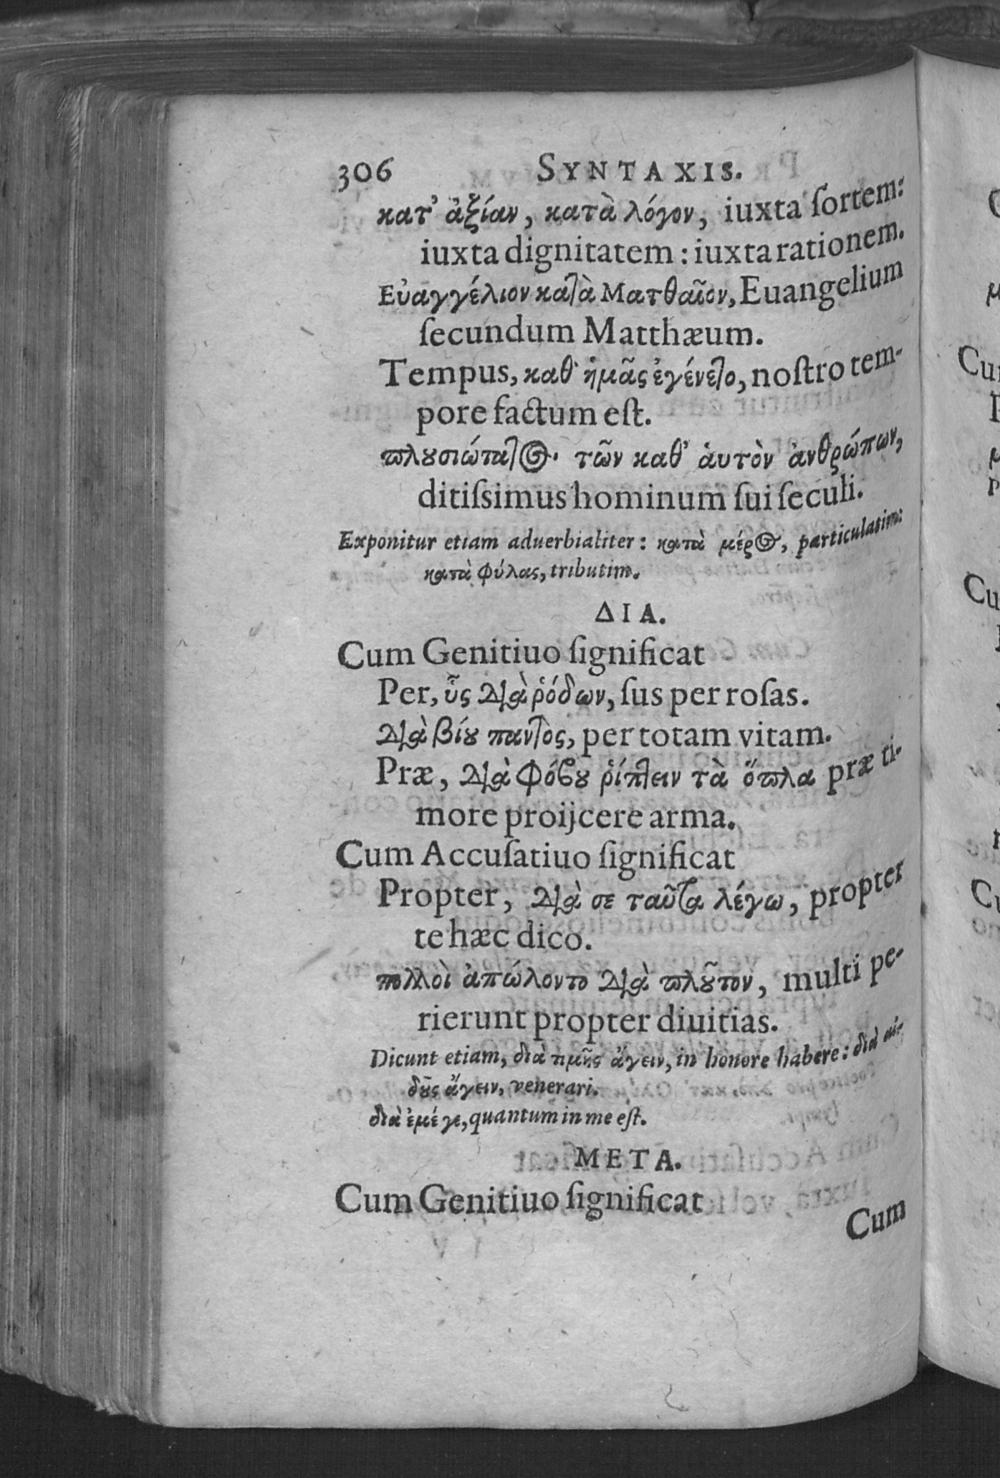 306 SYNTAXIS.
κατ' ἀξίαν, κατὰ λόγον, iuxta ſortem:
iuxta dignitatem : iuxta rationem.
Εὐαγγέλιον κατὰ Ματθαῖον, Euangelium
ſecundum Matthæum.
Tempus, καθ' ἡμᾶς ἐγένετο, noſtro tem-
pore factum eſt.
πλουσιώτατος τῶν καθ' ἁυτὸν ἀνθρώπων,
ditiſsimus hominum ſui ſeculi.
Exponitur etiam aduerbialiter : κατὰ μέρος, particulatim:
κατὰ φύλας, tributim.
ΔΙΑ.
Cum Genitiuo ſignificat
Per, ὗς διὰ ῥόδων, ſus per roſas.
διὰ βίου παντὸς, per totam vitam.
Præ, διὰ φόβου ῥίπτειν τὰ ὅπλα præ ti-
more proijcere arma.
Cum Accuſatiuo ſignificat
Propter, διὰ σε ταῦτα λέγω, propter
te hæc dico.
πολλοὶ ἀπώλοντο διὰ πλοῦτον, multi pe-
rierunt propter diuitias.
Dicunt etiam, διὰ τιμῆς ἄγειν, in honore habere : διὰ αἰ-
δοῦς ἄγειν, venerari.
διὰ ἐμέ γε, quantum in me eſt.
ΜΕΤΑ.
Cum Genitiuo ſignificat
Cum